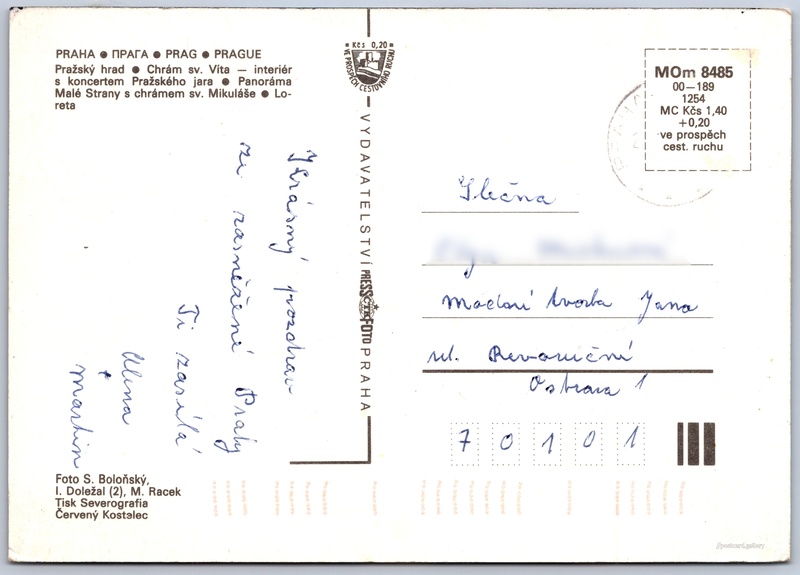 PRAHA ● ПРАГА ● PRAG ● PRAGUE
Pražský hrad ● Chrám sv. Víta — interiér
s koncertem Pražského jara ● Panoráma
Malé Strany s chrámem sv. Mikuláše ● Lo-
reta
Krásný pozdrav
ze zasněžené Prahy
Ti zasílá
Alena
+
Martin
Foto S. Boloňský,
I. Doležal (2), M. Racek
Tisk Severografia
Červený Kostelec
Kčs 0,20
VE PROSPĚCH CESTOVNÍHO RUCHU
VYDAVATELSTVÍ PRESSFOTO PRAHA
ČTK
MOm 8485
00—189
1254
MC Kčs 1,40
+0,20
ve prospěch
cest. ruchu
Slečna
Modní tvorba Jana
ul. Revoluční
Ostrava 1
7 0 1 0 1
postcard.gallery